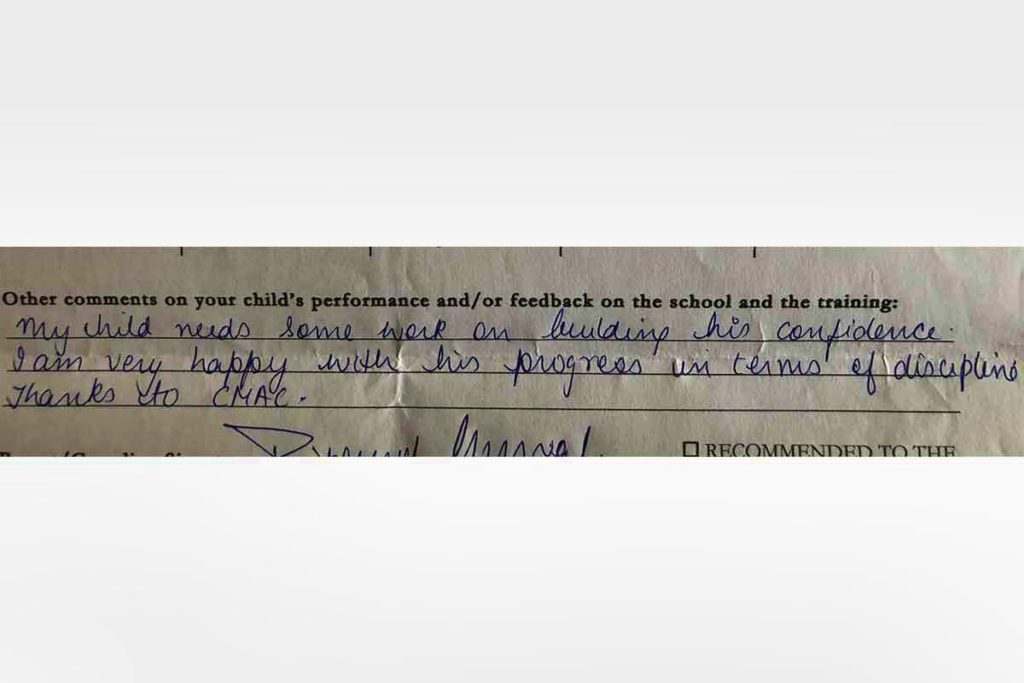 Other comments on your child's performance and/or feedback on the school and the training:
My child needs some work on building his confidence.
I am very happy with his progress in terms of discipline
Thanks to CMAC.
RECOMMENDED TO THE